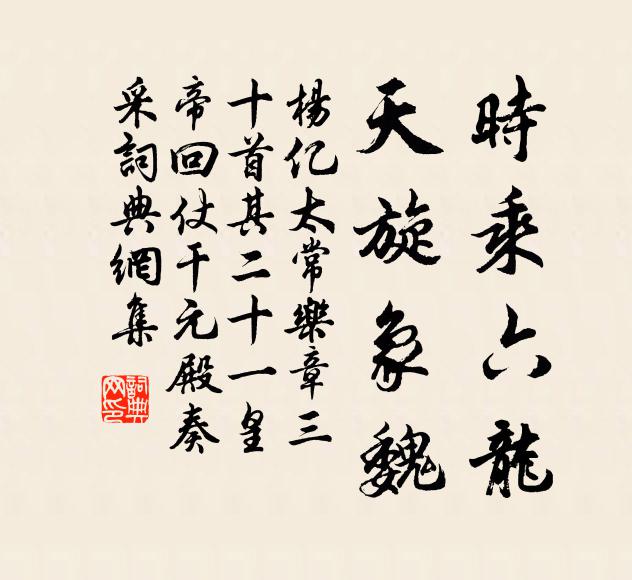 時乘六龍
天旋象魏
楊亿太常樂章三
十首其二十一皇
帝回仗干元殿奏
采詞典網集
詞典網印